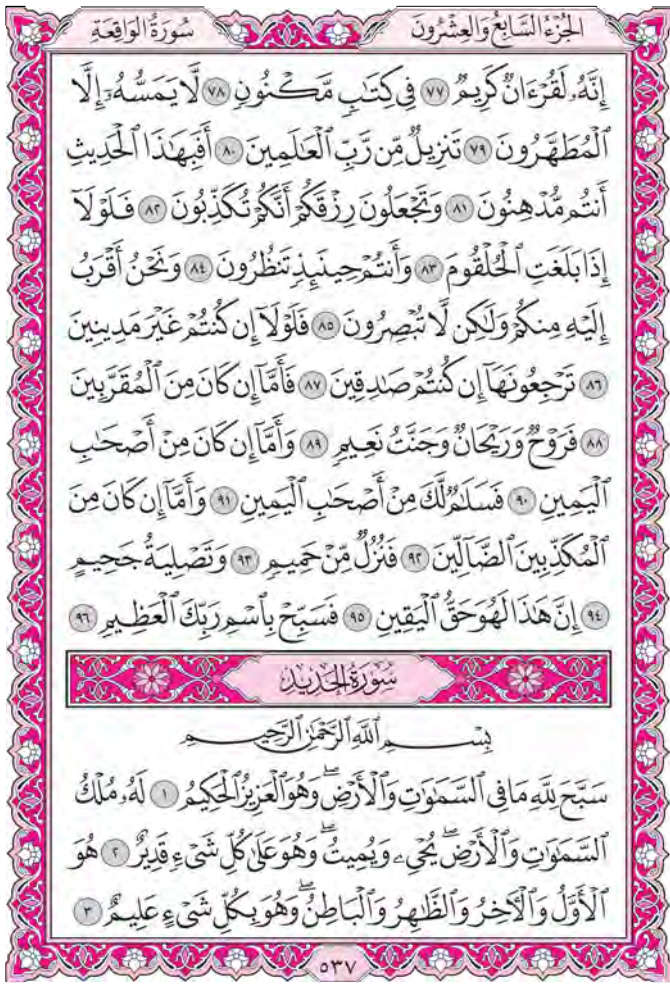 الجُزْءُ السَّابِعُ وَالعِشْرُونَ سُورَةُ الوَاقِعَةِ
إِنَّهُۥ لَقُرْءَانٌ كَرِيمٌ ٧٧ فِي كِتَٰبٍ مَّكْنُونٍ ٧٨ لَّا يَمَسُّهُۥٓ إِلَّا
ٱلْمُطَهَّرُونَ ٧٩ تَنزِيلٌ مِّن رَّبِّ ٱلْعَٰلَمِينَ ٨٠ أَفَبِهَٰذَا ٱلْحَدِيثِ
أَنتُم مُّدْهِنُونَ ٨١ وَتَجْعَلُونَ رِزْقَكُمْ أَنَّكُمْ تُكَذِّبُونَ ٨٢ فَلَوْلَآ
إِذَا بَلَغَتِ ٱلْحُلْقُومَ ٨٣ وَأَنتُمْ حِينَئِذٍ تَنظُرُونَ ٨٤ وَنَحْنُ أَقْرَبُ
إِلَيْهِ مِنكُمْ وَلَٰكِن لَّا تُبْصِرُونَ ٨٥ فَلَوْلَآ إِن كُنتُمْ غَيْرَ مَدِينِينَ
٨٦ تَرْجِعُونَهَآ إِن كُنتُمْ صَٰدِقِينَ ٨٧ فَأَمَّآ إِن كَانَ مِنَ ٱلْمُقَرَّبِينَ
٨٨ فَرَوْحٌ وَرَيْحَانٌ وَجَنَّتُ نَعِيمٍ ٨٩ وَأَمَّآ إِن كَانَ مِنْ أَصْحَٰبِ
ٱلْيَمِينِ ٩٠ فَسَلَٰمٌ لَّكَ مِنْ أَصْحَٰبِ ٱلْيَمِينِ ٩١ وَأَمَّآ إِن كَانَ مِنَ
ٱلْمُكَذِّبِينَ ٱلضَّآلِّينَ ٩٢ فَنُزُلٌ مِّنْ حَمِيمٍ ٩٣ وَتَصْلِيَةُ جَحِيمٍ
٩٤ إِنَّ هَٰذَا لَهُوَ حَقُّ ٱلْيَقِينِ ٩٥ فَسَبِّحْ بِٱسْمِ رَبِّكَ ٱلْعَظِيمِ ٩٦
سُورَةُ الحَدِيدِ
بِسْمِ ٱللَّهِ ٱلرَّحْمَٰنِ ٱلرَّحِيمِ
سَبَّحَ لِلَّهِ مَا فِي ٱلسَّمَٰوَٰتِ وَٱلْأَرْضِۖ وَهُوَ ٱلْعَزِيزُ ٱلْحَكِيمُ ١ لَهُۥ مُلْكُ
ٱلسَّمَٰوَٰتِ وَٱلْأَرْضِۖ يُحْيِۦ وَيُمِيتُۖ وَهُوَ عَلَىٰ كُلِّ شَيْءٍ قَدِيرٌ ٢ هُوَ
ٱلْأَوَّلُ وَٱلْءَاخِرُ وَٱلظَّٰهِرُ وَٱلْبَاطِنُۖ وَهُوَ بِكُلِّ شَيْءٍ عَلِيمٌ ٣
٥٣٧